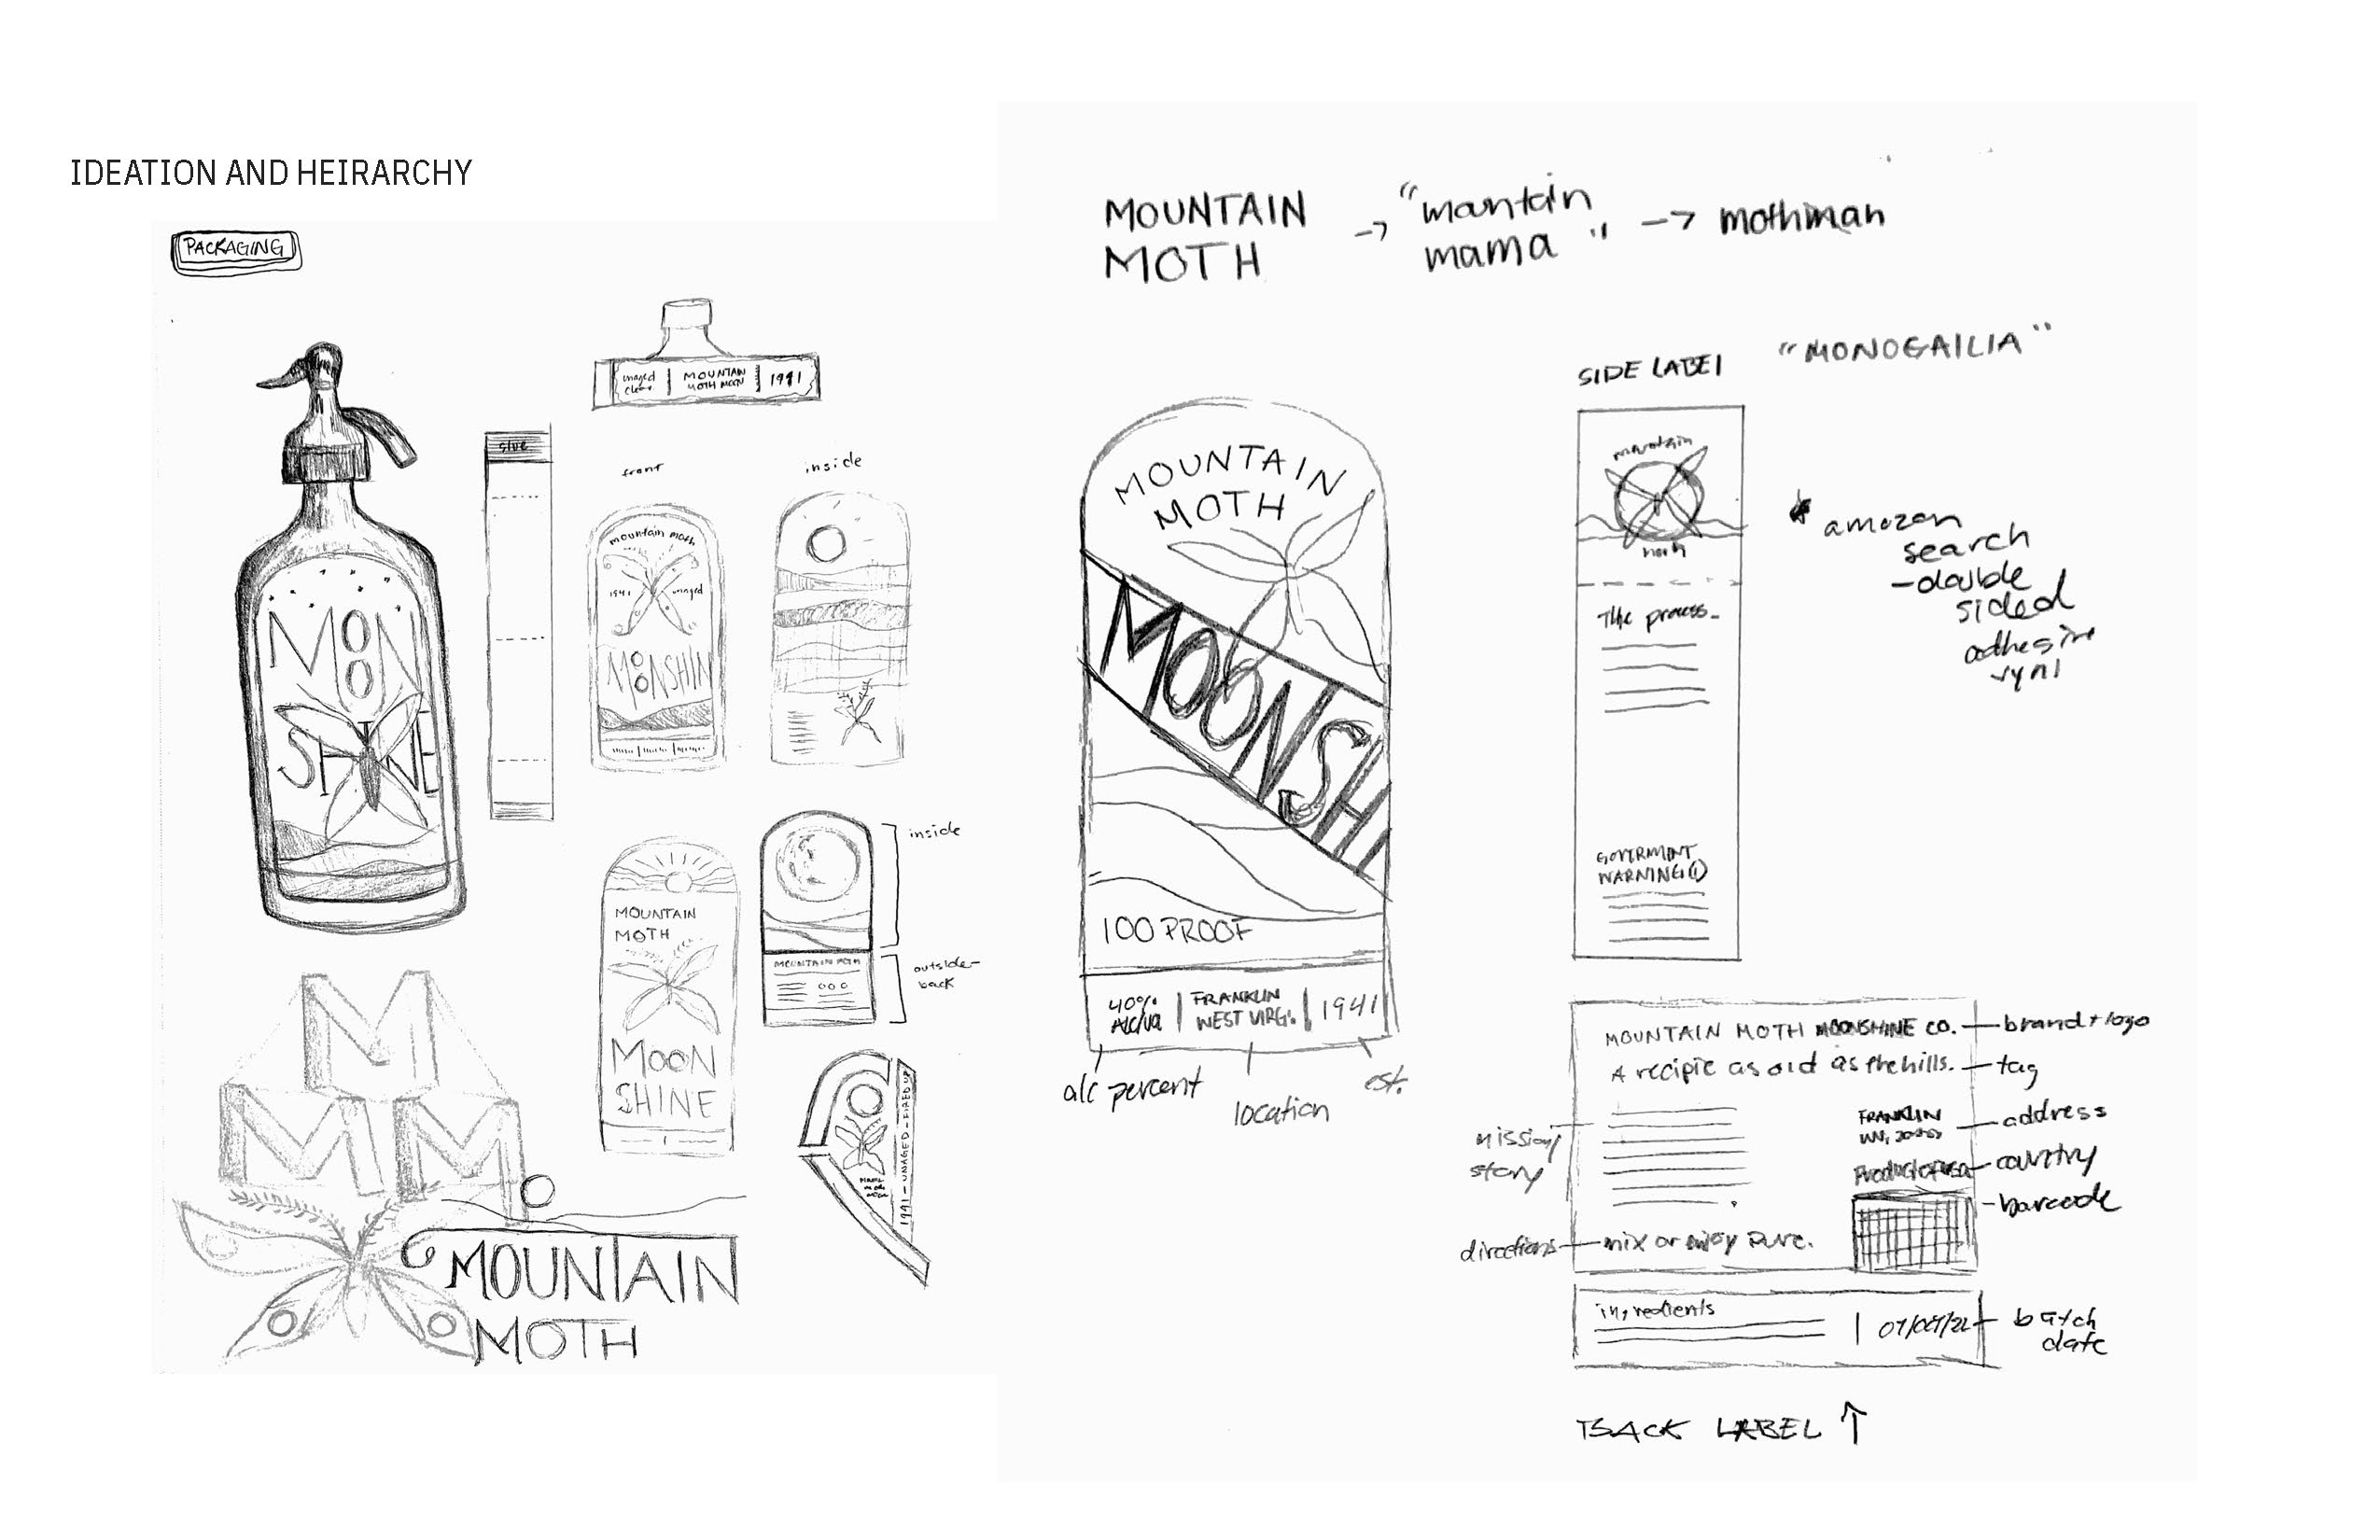 IDEATION AND HEIRARCHY
PACKAGING
unaged
clear
MOUNTAIN
MOTH MOON
1941
glue
front
inside
MOON
SHINE
mountain moth
1941
unaged
MOONSHIN
MOUNTAIN
MOTH
MOON
SHINE
inside
MOUNTAIN MOTH
outside-
back
1941-UNAGED-FIRED UP
M
M M
MOUNTAIN
MOTH
MOUNTAIN
MOTH
-> "mountain
mama" -> mothman
MOUNTAIN
MOTH
MOONSHI
100 PROOF
40%
Alc/Vol
FRANKLIN
WEST VIRG.
1941
alc percent
location
est.
SIDE LABEL
"MONOGAILIA"
mountain
moth
The process
GOVERMENT
WARNING(1)
amozon
search
-double
sided
adhesive
vynl
MOUNTAIN MOTH MOONSHINE CO.
brand + logo
A recipie as old as the hills.
tag
FRANKLIN
address
Product of usa
country
barcode
mission/
story
directions
mix or enjoy pure.
ingredients
batch
date
BACK LABEL ↑